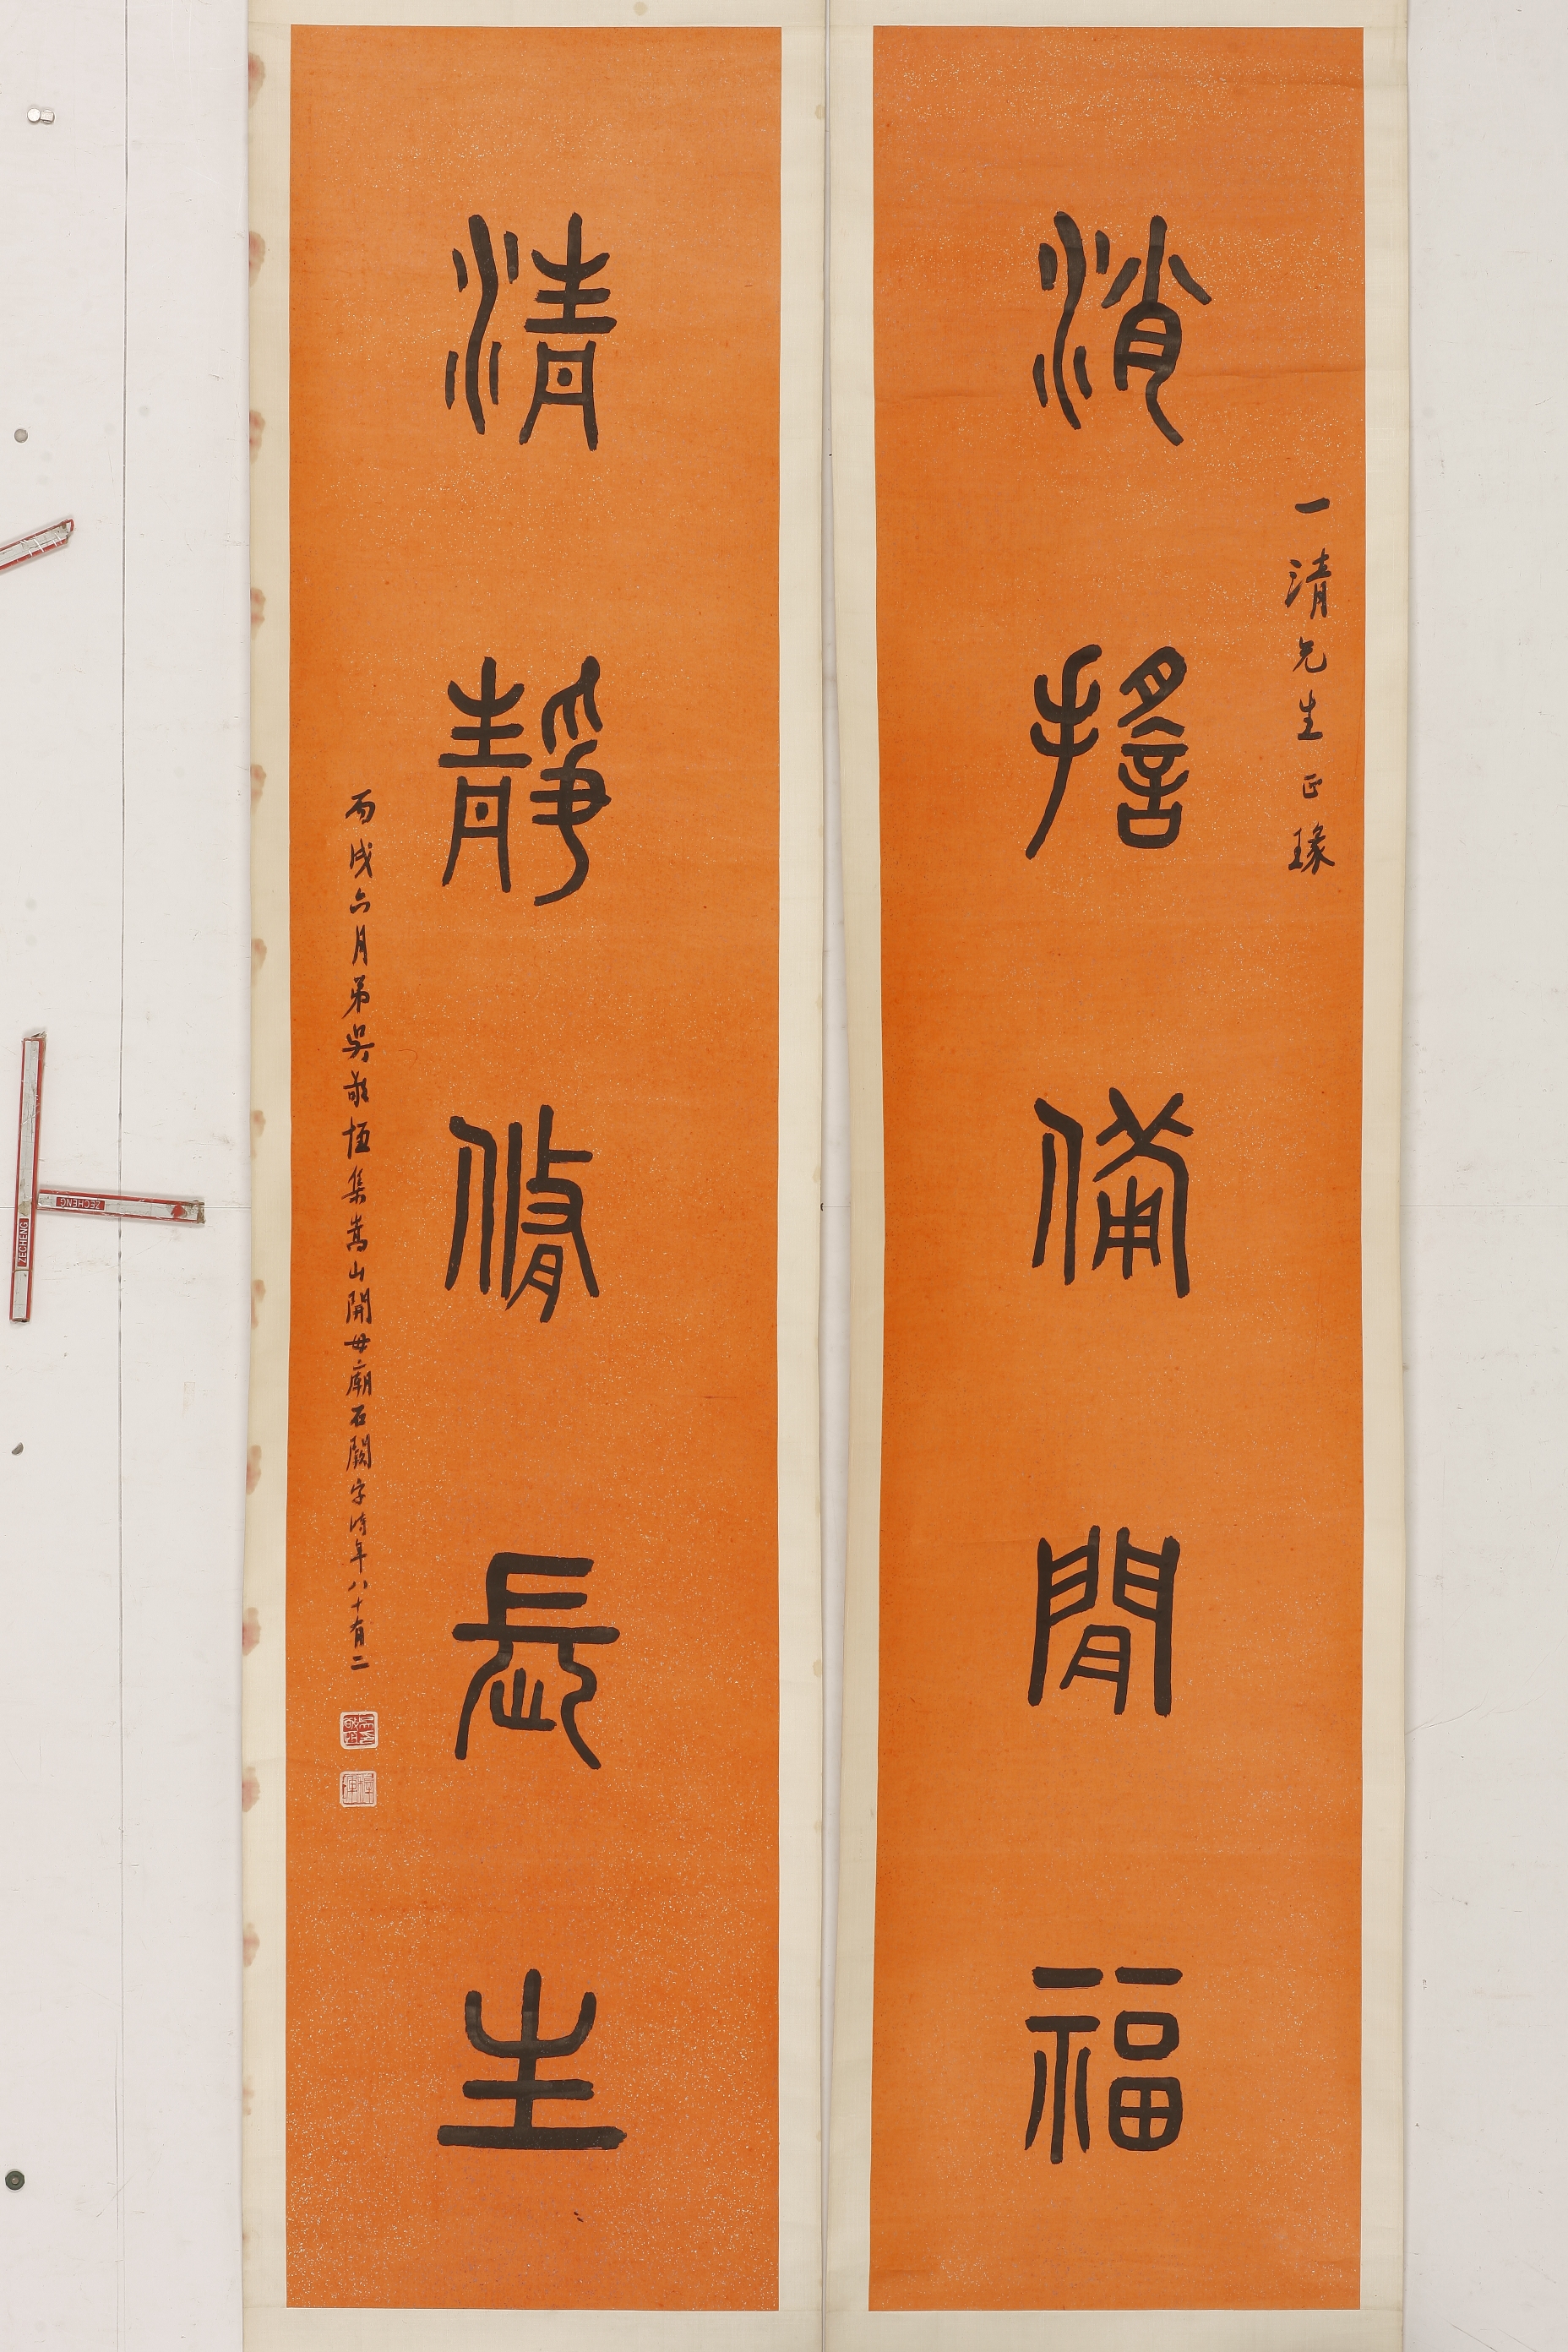 一清先生正瑑
消搖備閒福
清靜脩長生
丙戌六月弟吳敬恆集嵩山開母廟石闕字時年八十有二
稚暉
ZECHENG
ZECHENG